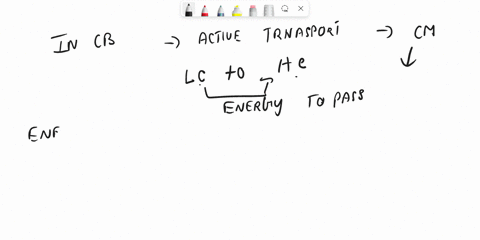 IN CB → ACTIVE TRNASPORT → CM ↓
LC to HC
ENERGY TO PASS
ENE